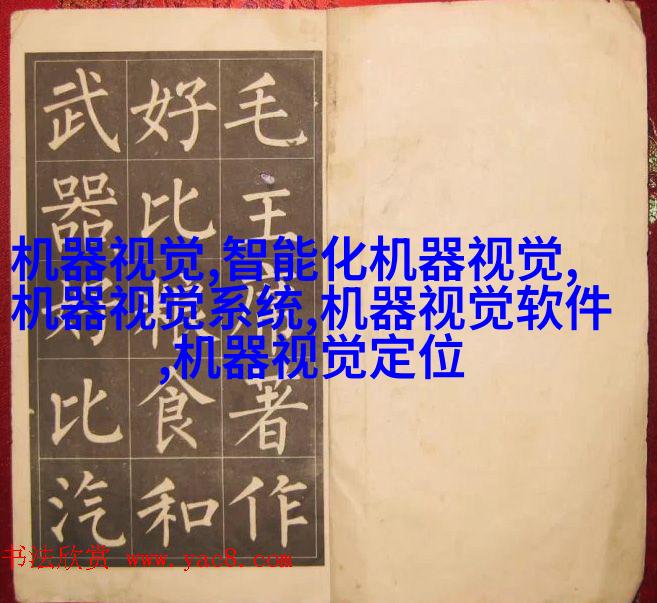 毛主席著作
好比糧食和
武器好比汽
机器视觉,智能化机器视觉,
机器视觉系统,机器视觉软件
,机器视觉定位
书法欣赏 www.yac8.com